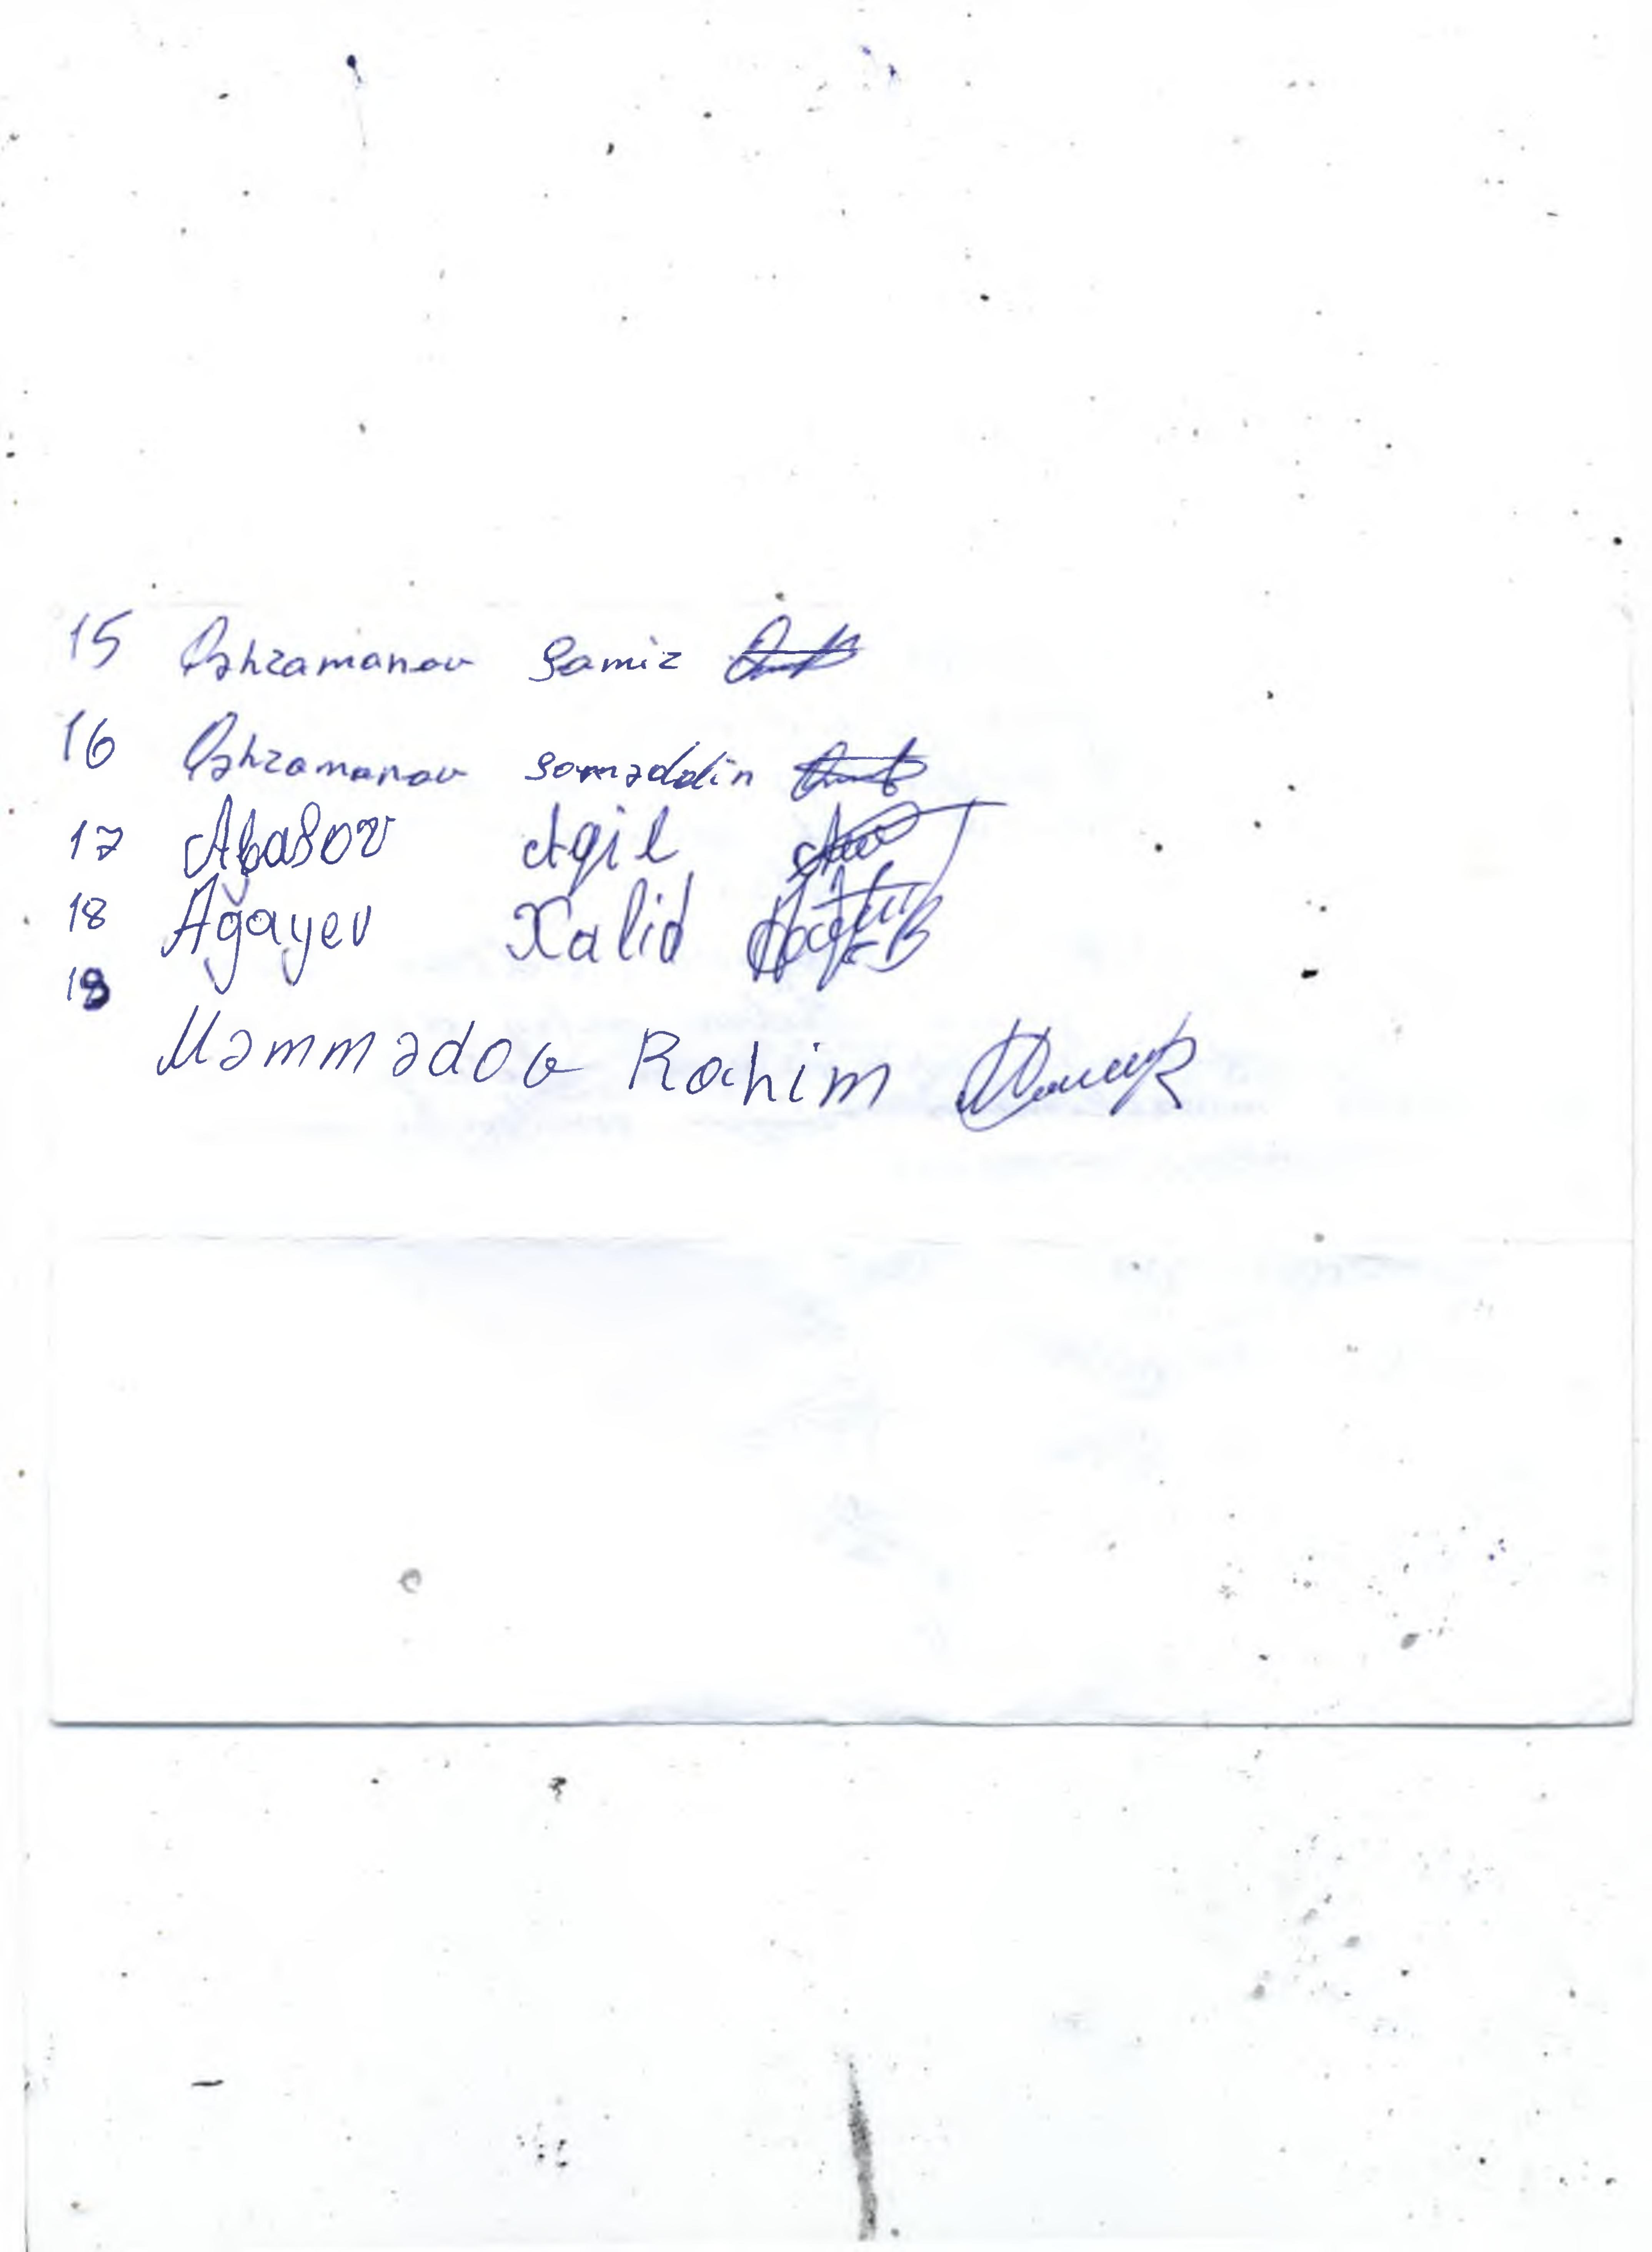 15 Qəhramanov Şamiz
16 Qəhramanov Səməddin
17 Abasov Aqil
18 Ağayev Xalid
19
Məmmədov Rahim